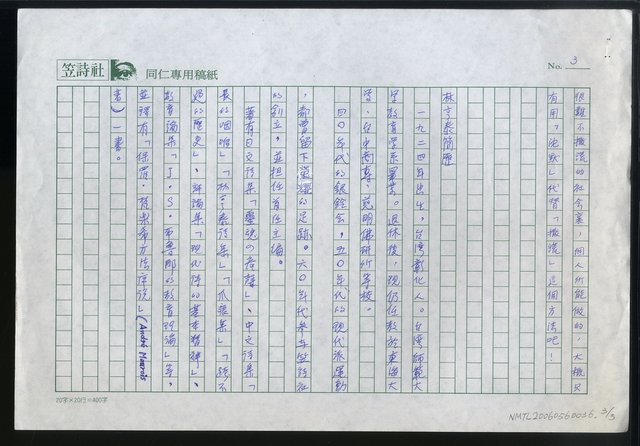 笠詩社
同仁專用稿紙
No. 3
很難不撒謊的社會裏,個人所能做的,大概只
有用「沈默」代替「撒謊」這個方法吧!
林亨泰簡歷
一九二四年出生,台灣彰化人。台灣師範大
學教育學系畢業。退休後,現仍任教於東海大
學、台中商專、
四〇年代的銀鈴會,五〇年代的現代派運動
,都曾留下輝耀的足跡。六〇年代參與笠詩社
的創立,並担任首任主編。
著有日文詩集「靈魂の產聲」、中文詩集「
長的咽喉」「林亨泰詩集」「爪痕集」「跨不
過的歷史」、評論集「現代詩的基本精神」、
教育論集「J.S.布魯那的教育理論」等,
並譯有「保羅・梵樂希方法序說」(André Maurois
著)一書。
20字×20行=400字
NMTL20060560036. 3/3